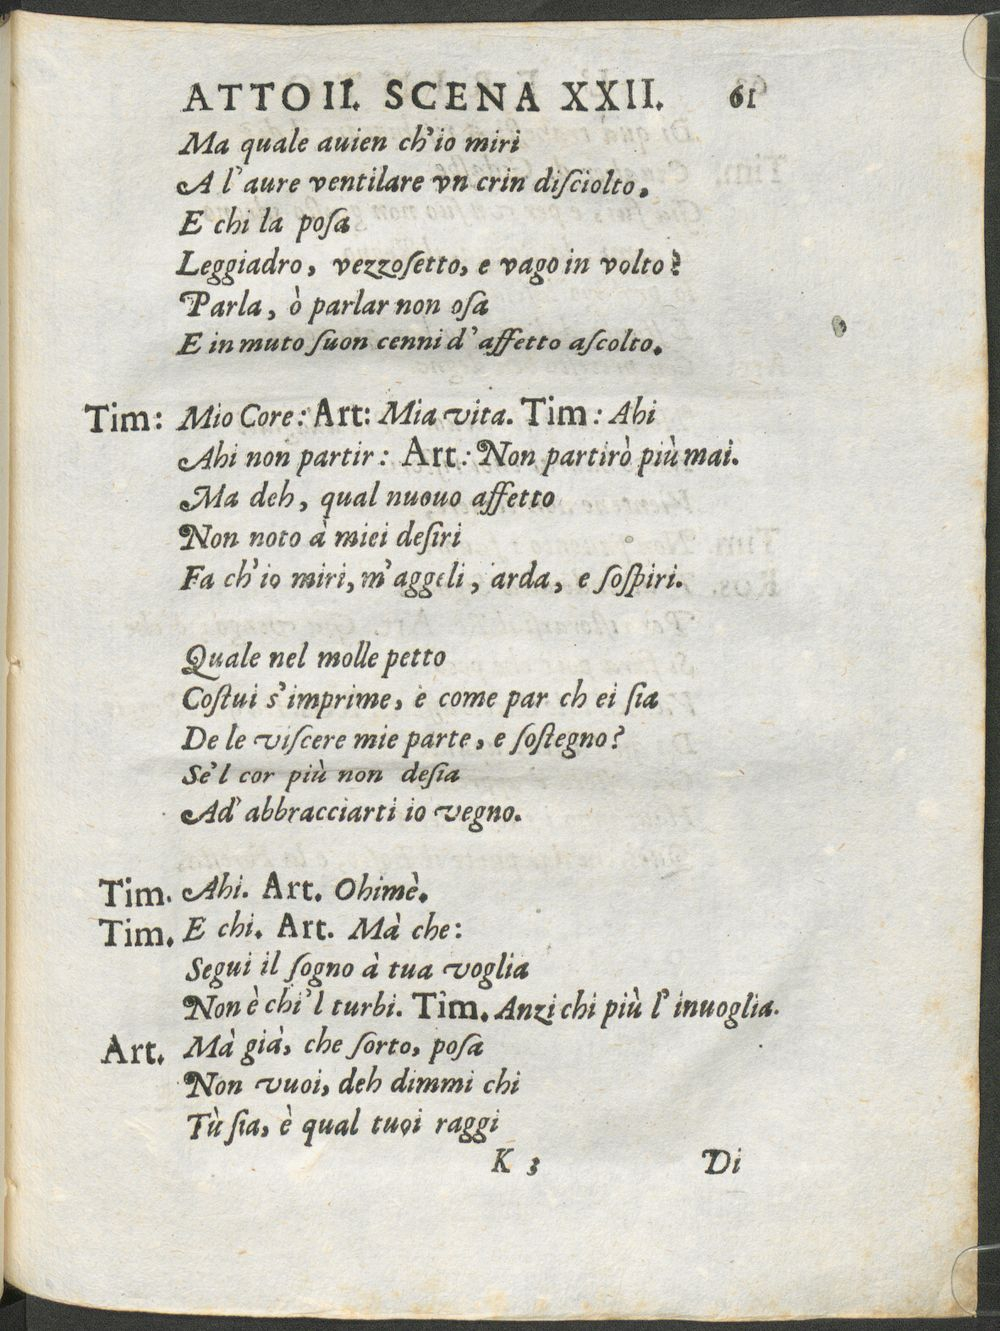 ATTO II. SCENA XXII. 61
Ma quale auien ch'io miri
A l'aure ventilare vn crin disciolto.
E chi la posa
Leggiadro, vezzosetto, e vago in volto?
Parla, ò parlar non osa
E in muto suon cenni d'affetto ascolto.
Tim: Mio Core: Art: Mia vita. Tim: Ahi
Ahi non partir: Art: Non partirò più mai.
Ma deh, qual nuouo affetto
Non noto à miei desiri
Fa ch'io miri, m'aggeli, arda, e sospiri.
Quale nel molle petto
Costui s'imprime, e come par ch ei sia
De le viscere mie parte, e sostegno?
Se'l cor più non desia
Ad' abbracciarti io vegno.
Tim. Ahi. Art. Ohimè.
Tim. E chi. Art. Mà che:
Segui il sogno à tua voglia
Non è chi'l turbi. Tim. Anzi chi più l'inuoglia.
Art. Mà già, che sorto, posa
Non vuoi, deh dimmi chi
Tù sia, è qual tuoi raggi
K 3 Di